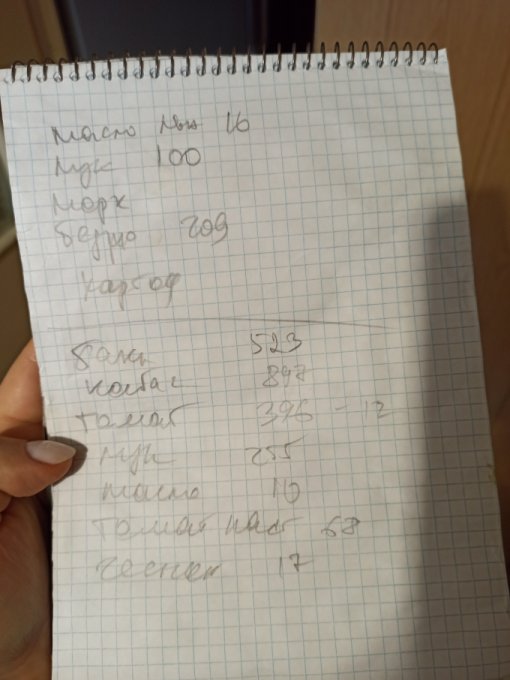 масло мын 16
лук 100
морк
бедро 209
картоф
балы 523
колбас 897
томат 396 - 12
лук 255
масло 10
томат паст 68
чеснок 17